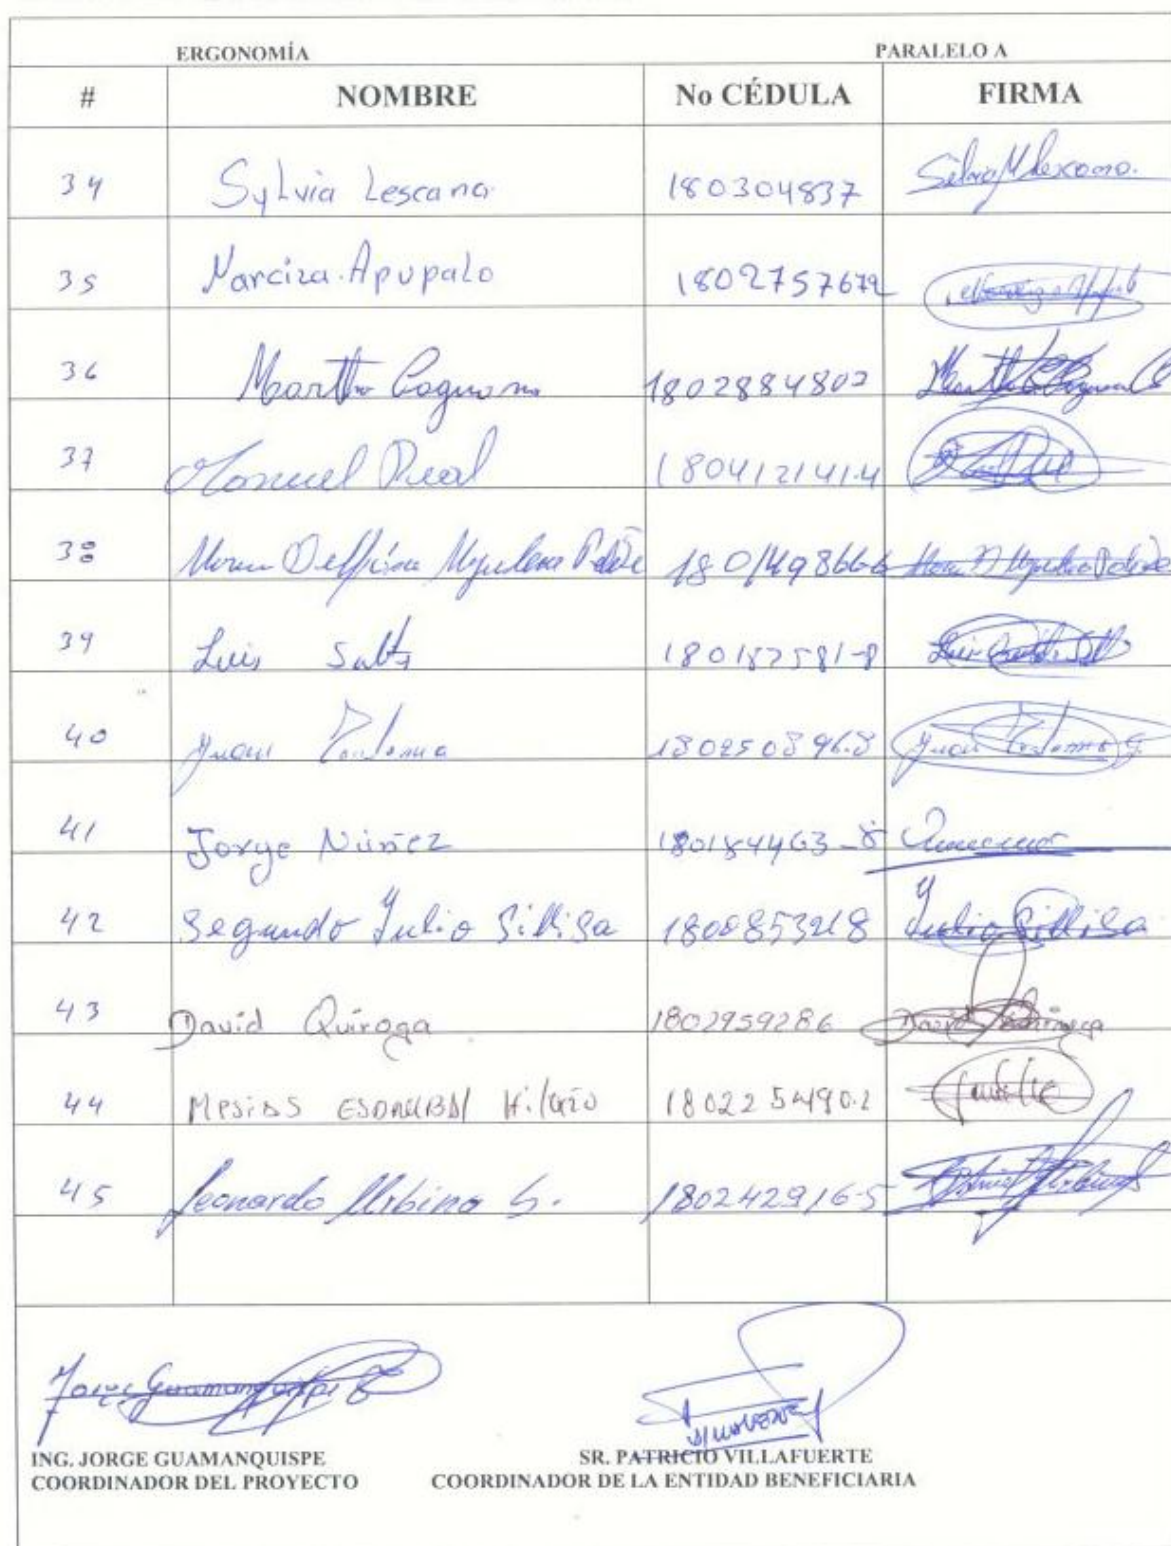 ERGONOMÍA PARALELO A
# NOMBRE No CÉDULA FIRMA
34 Sylvia Lescano 180304837 Silvia M Lescano.
35 Narciza Apupalo 1802757672
36 Martha Caguana 1802884802
37 Manuel Real 180412141-4
38 Delfina 180149866-6
39 Luis Salts 180187581-8
40 Juan 180250896-8 Juan
41 Jorge Núñez 180184463-8
42 Segundo Julio Sillisa 1800853218 Julio Sillisa
43 David Quiroga 1802959286 David Quiroga
44 Mesias Hilario 180225490-2
45 Leonardo Urbina S. 180242916-5
Jorge Guamanquispe
ING. JORGE GUAMANQUISPE SR. PATRICIO VILLAFUERTE
COORDINADOR DEL PROYECTO COORDINADOR DE LA ENTIDAD BENEFICIARIA